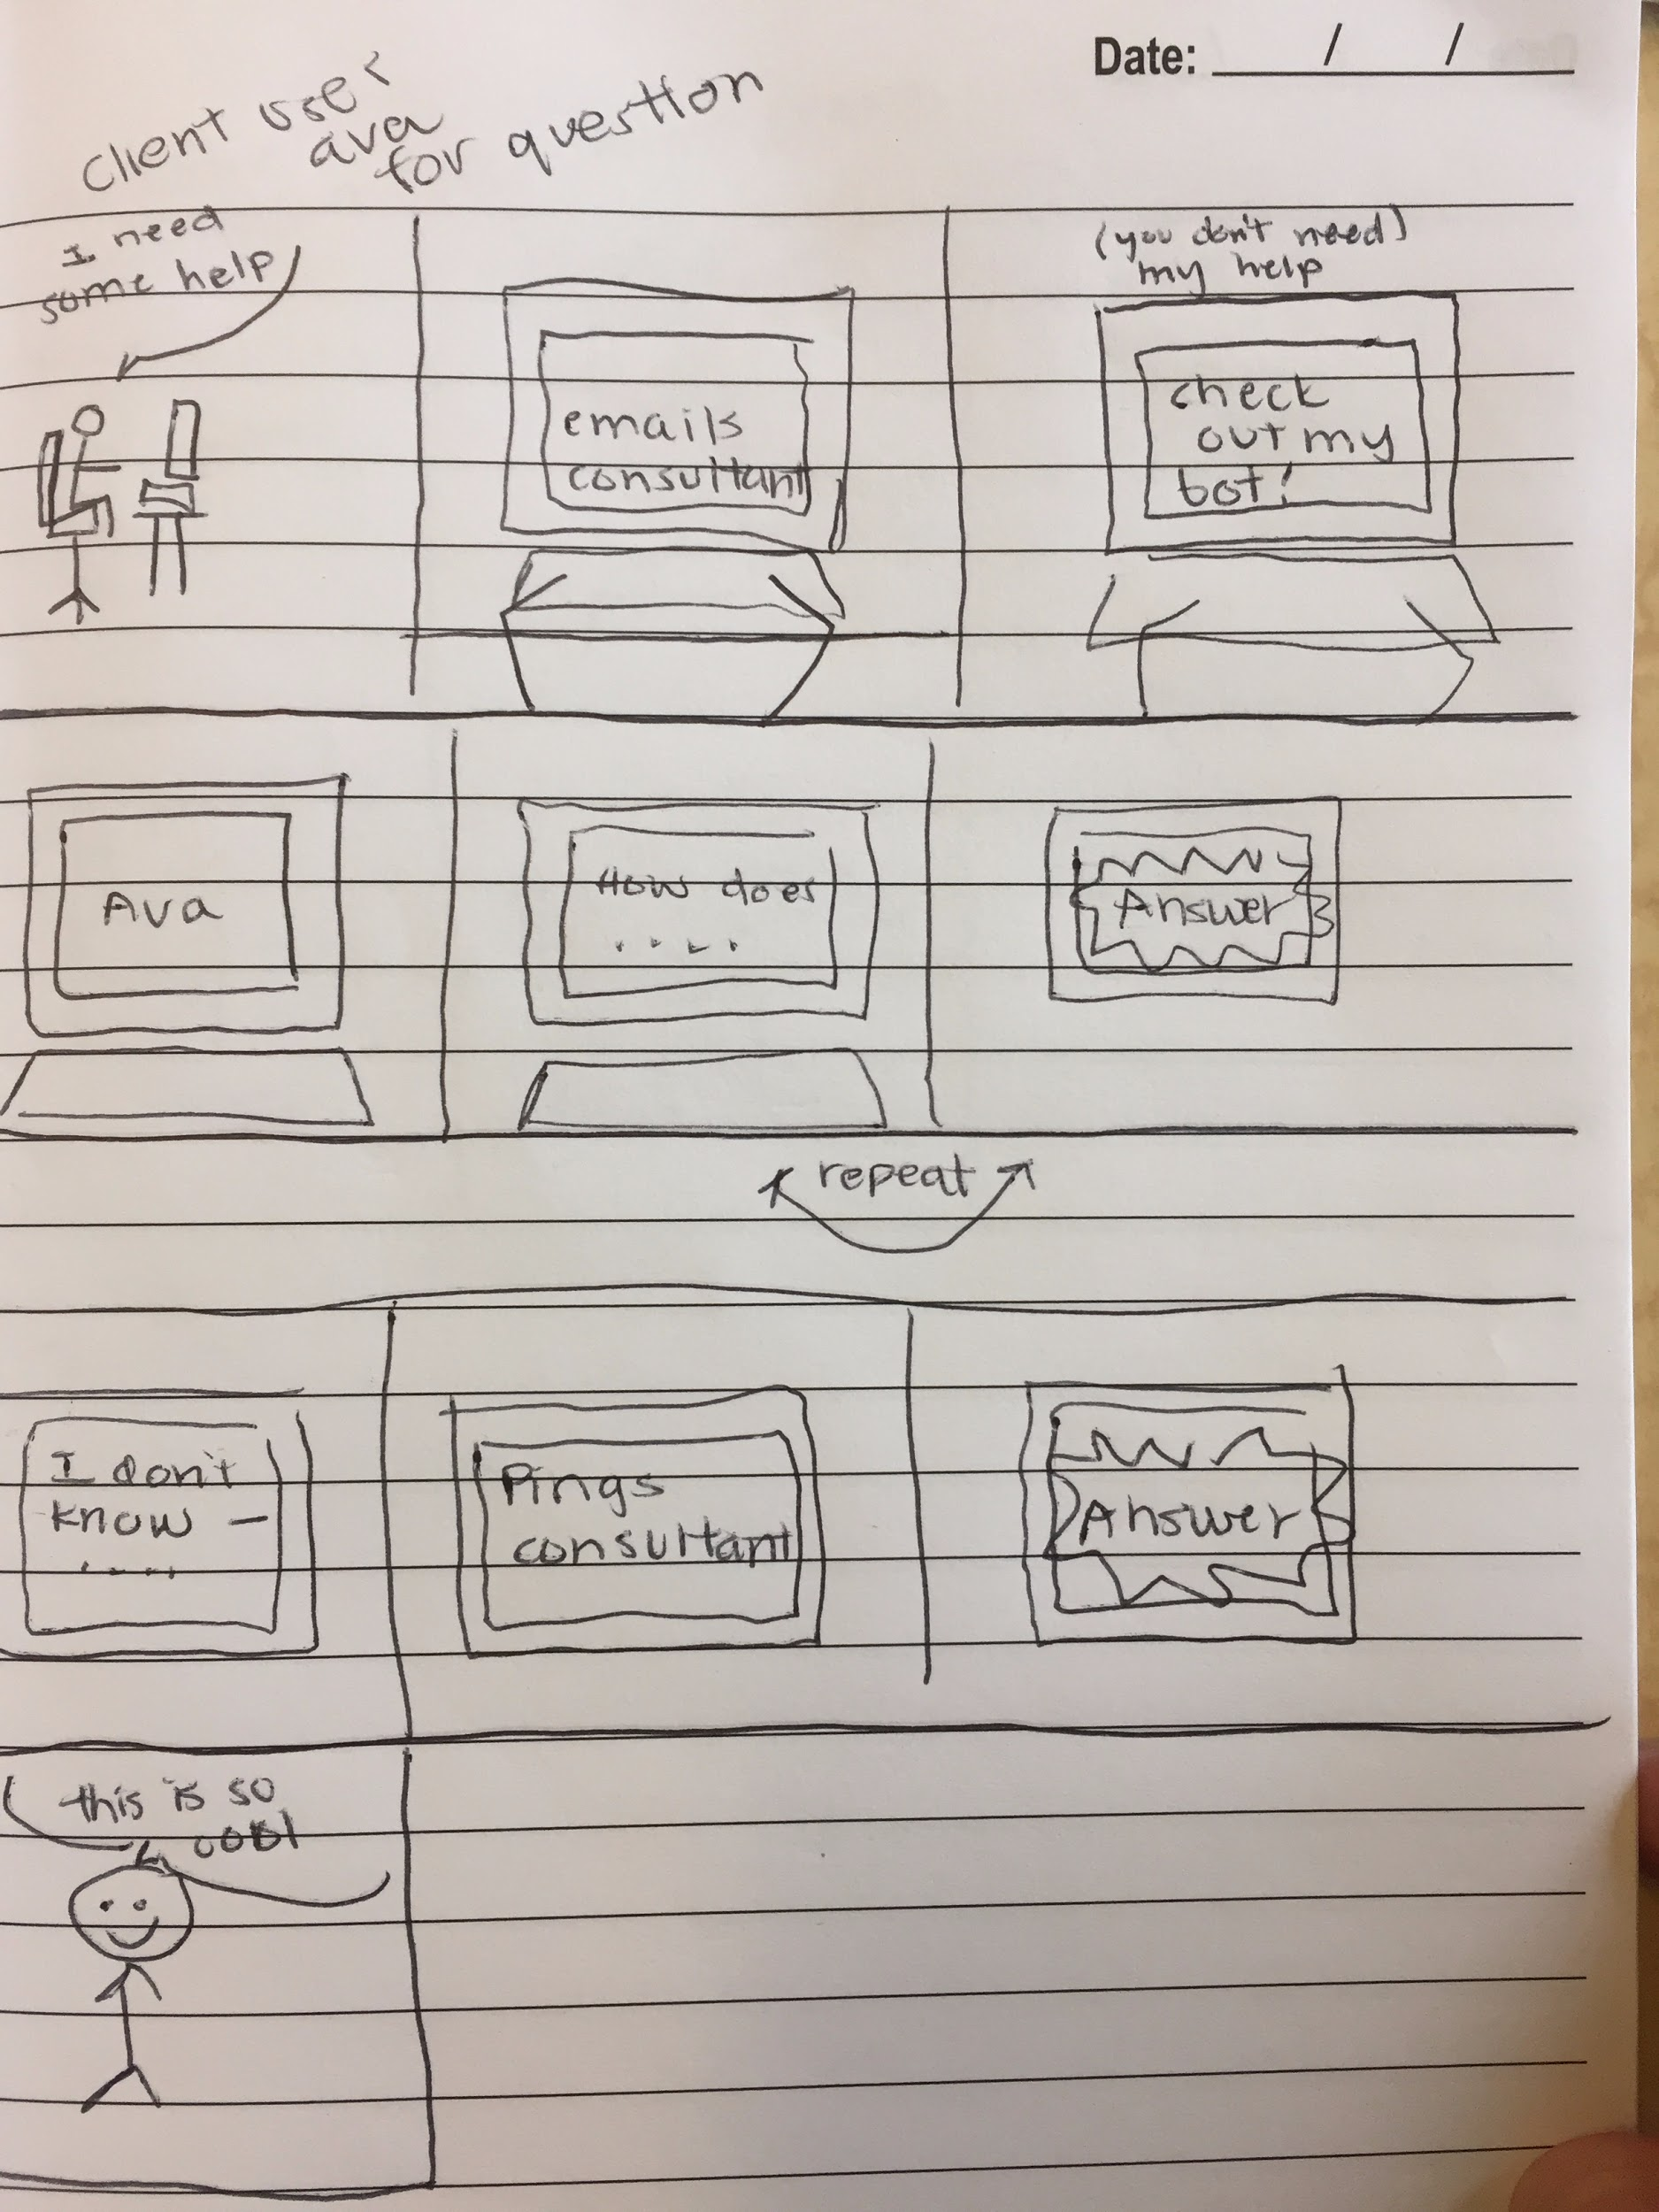 Date: / /
client uses
ava
for question
I need
some help
emails
consultant
(you don't need)
my help
check
out my
bot!
Ava
How does
....
Answer
repeat
I don't
know —
....
Pings
consultant
Answer
this is so
cool